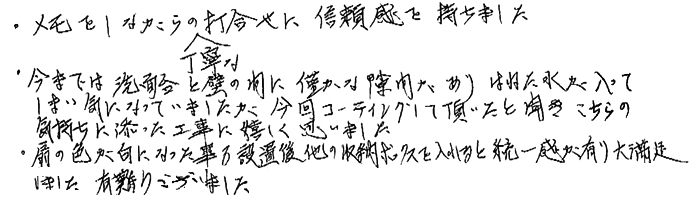 ・メモをしながらの打合せに信頼感を持ちました
丁寧な
・今までは洗面台と壁の間に僅かな隙間があり はねた水が入って
しまい気になっていましたが 今回コーティングして頂いたと聞き こちらの
気持ちに添った工事に嬉しく思いました
・扉の色が白になった事 設置後他の収納ボックスを入れると統一感が有り大満足
しました 有難うございました